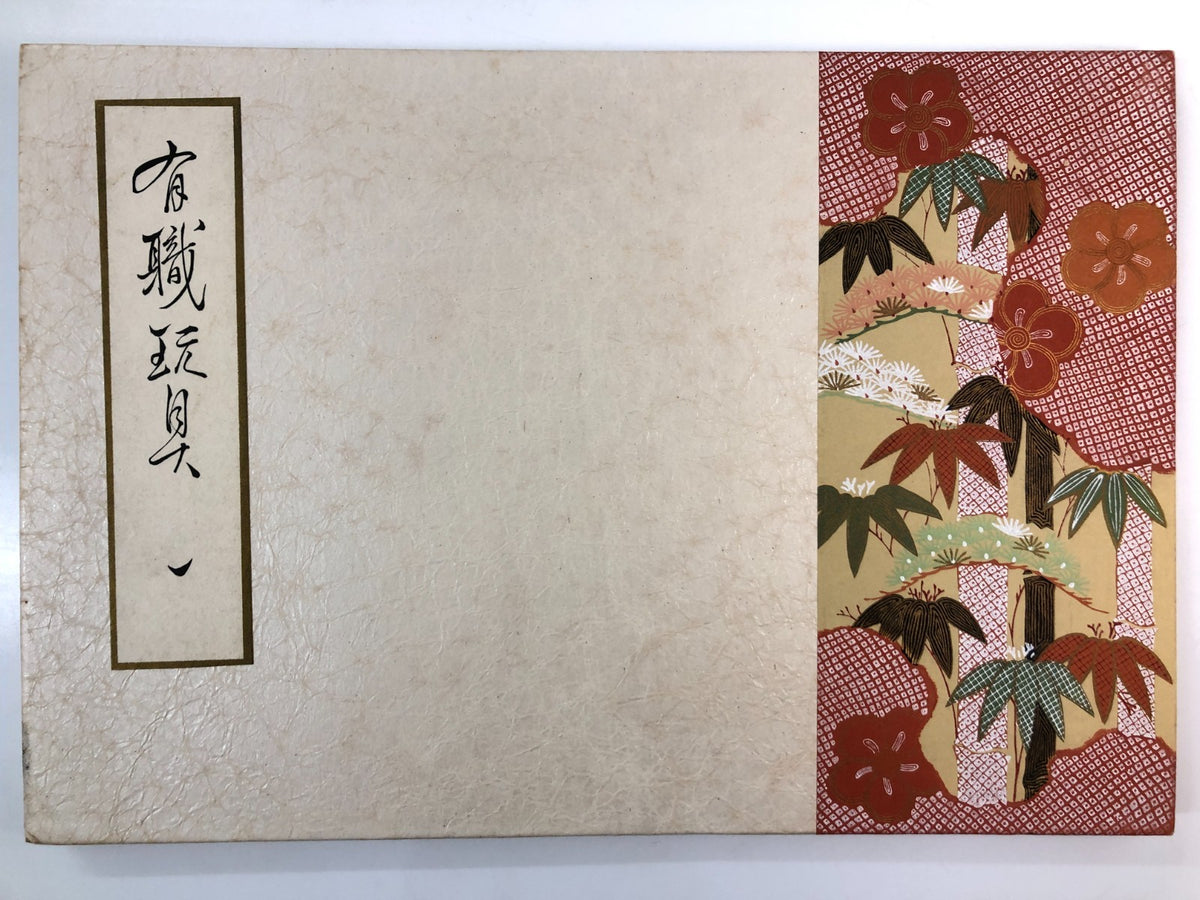 有職玩具